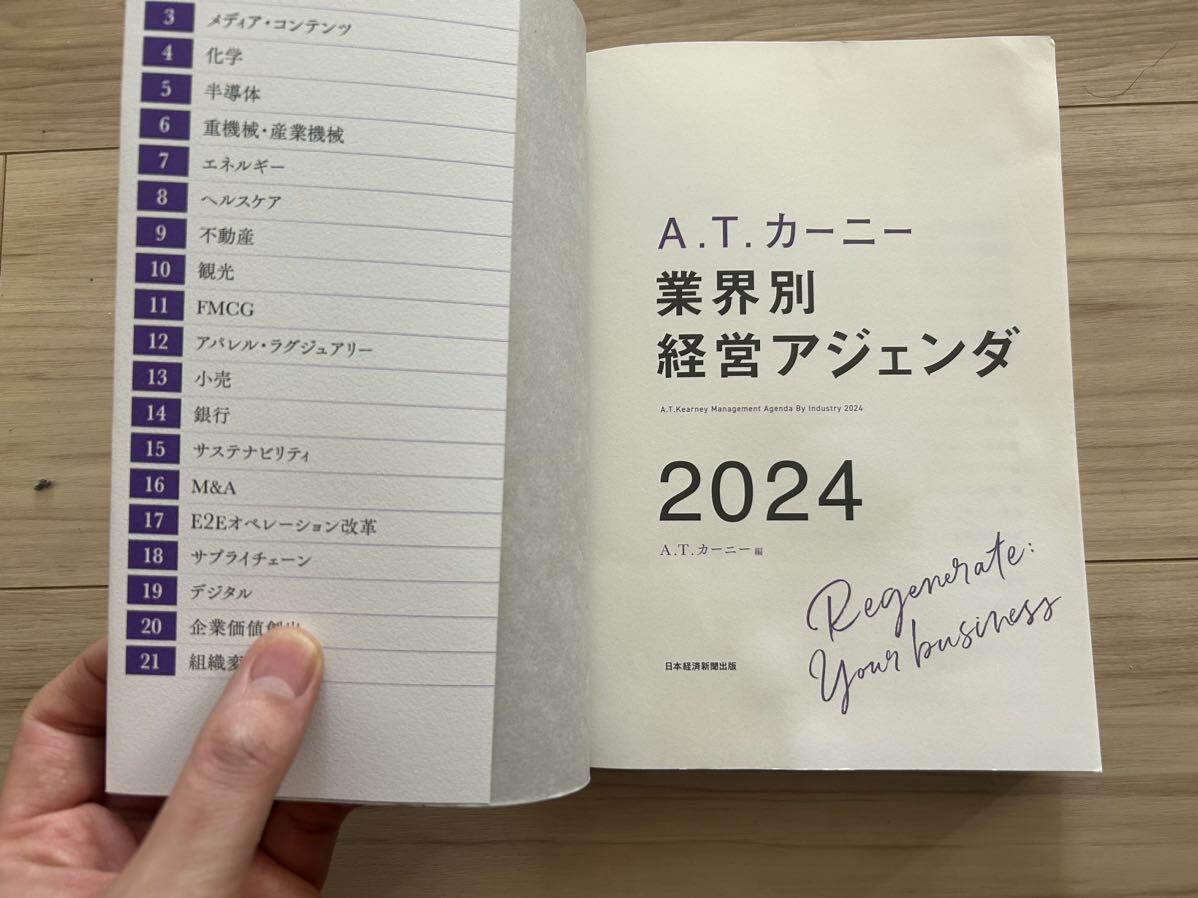 3 メディア・コンテンツ
4 化学
5 半導体
6 重機械・産業機械
7 エネルギー
8 ヘルスケア
9 不動産
10 観光
11 FMCG
12 アパレル・ラグジュアリー
13 小売
14 銀行
15 サステナビリティ
16 M&A
17 E2Eオペレーション改革
18 サプライチェーン
19 デジタル
20 企業価値
21 組織変
A.T.カーニー
業界別
経営アジェンダ
A.T.Kearney Management Agenda By Industry 2024
2024
A.T.カーニー 編
Regenerate:
Your business
日本経済新聞出版